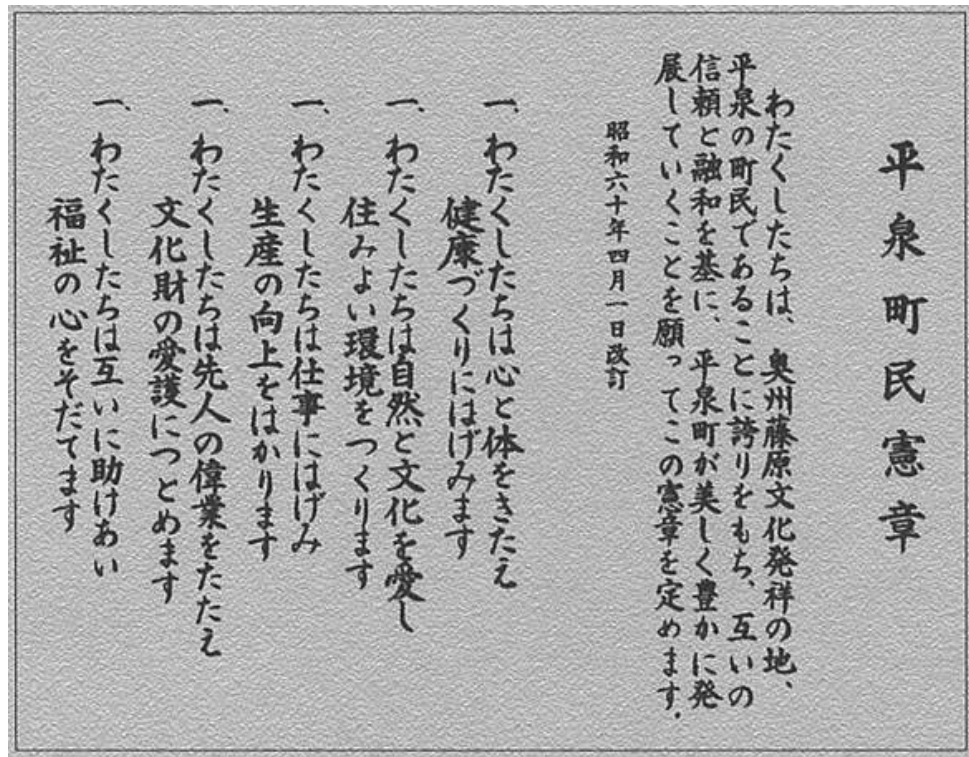 平泉町民憲章
わたくしたちは、奥州藤原文化発祥の地、
平泉の町民であることに誇りをもち、互いの
信頼と融和を基に、平泉町が美しく豊かに発
展していくことを願ってこの憲章を定めます.
昭和六十年四月一日改訂
一、わたくしたちは心と体をきたえ
健康づくりにはげみます
一、わたくしたちは自然と文化を愛し
住みよい環境をつくります
一、わたくしたちは仕事にはげみ
生産の向上をはかります
一、わたくしたちは先人の偉業をたたえ
文化財の愛護につとめます
一、わたくしたちは互いに助けあい
福祉の心をそだてます